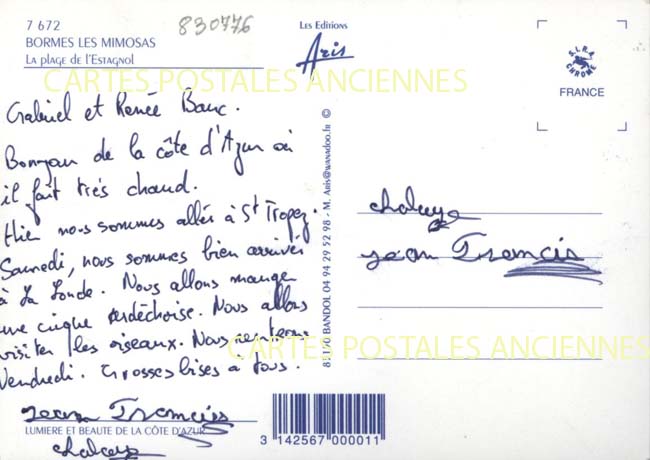 7 672
BORMES LES MIMOSAS
La plage de l'Estagnol
830776
Les Editions
Aris
S.I.R.A
CHROME
FRANCE
CARTES POSTALES ANCIENNES
Gabriel et Renée Banc.
Bonjou de la côte d'Azur où
il fait très chaud.
Hier nous sommes allés à St Tropez.
Samedi, nous sommes bien arrivés
à La Londe. Nous allons manger
une cinque ardéchoise. Nous allons
visiter les oiseaux. Nous rentrerns
Vendredi. Grosses bises a tous.
Jean Francis
chalaye
LUMIERE ET BEAUTE DE LA CÔTE D'AZUR
83150 BANDOL 04 94 29 52 98 - M. Aris@wanadoo.fr ©
chalaye
Jean Francis
CARTES POSTALES ANCIENNES
3 142567 000011